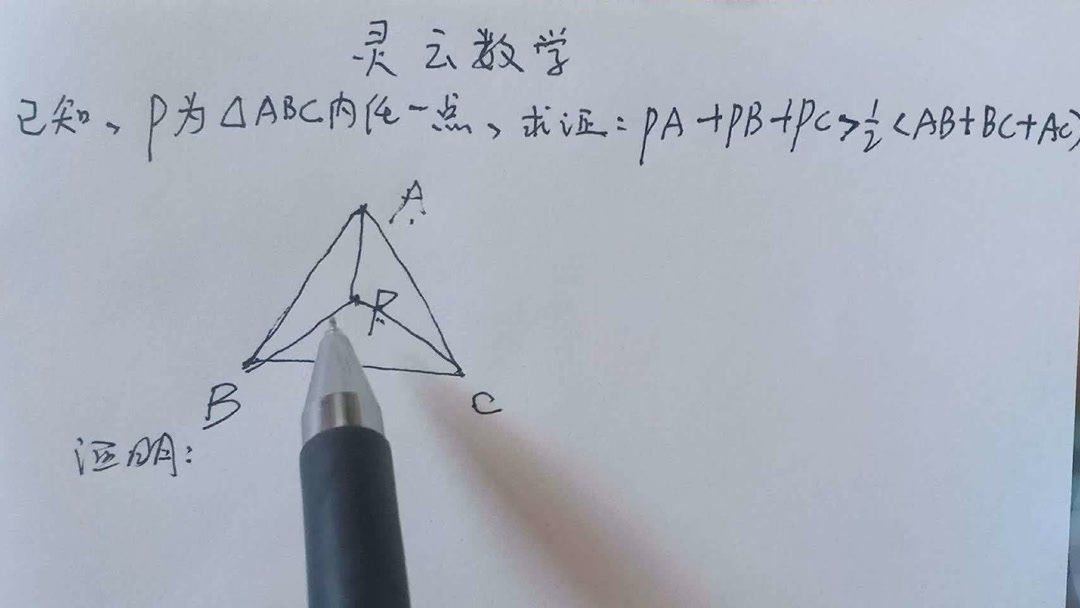 灵云数学
已知、P为△ABC内任一点、求证:PA+PB+PC>½(AB+BC+AC)
A
P
B
C
证明: